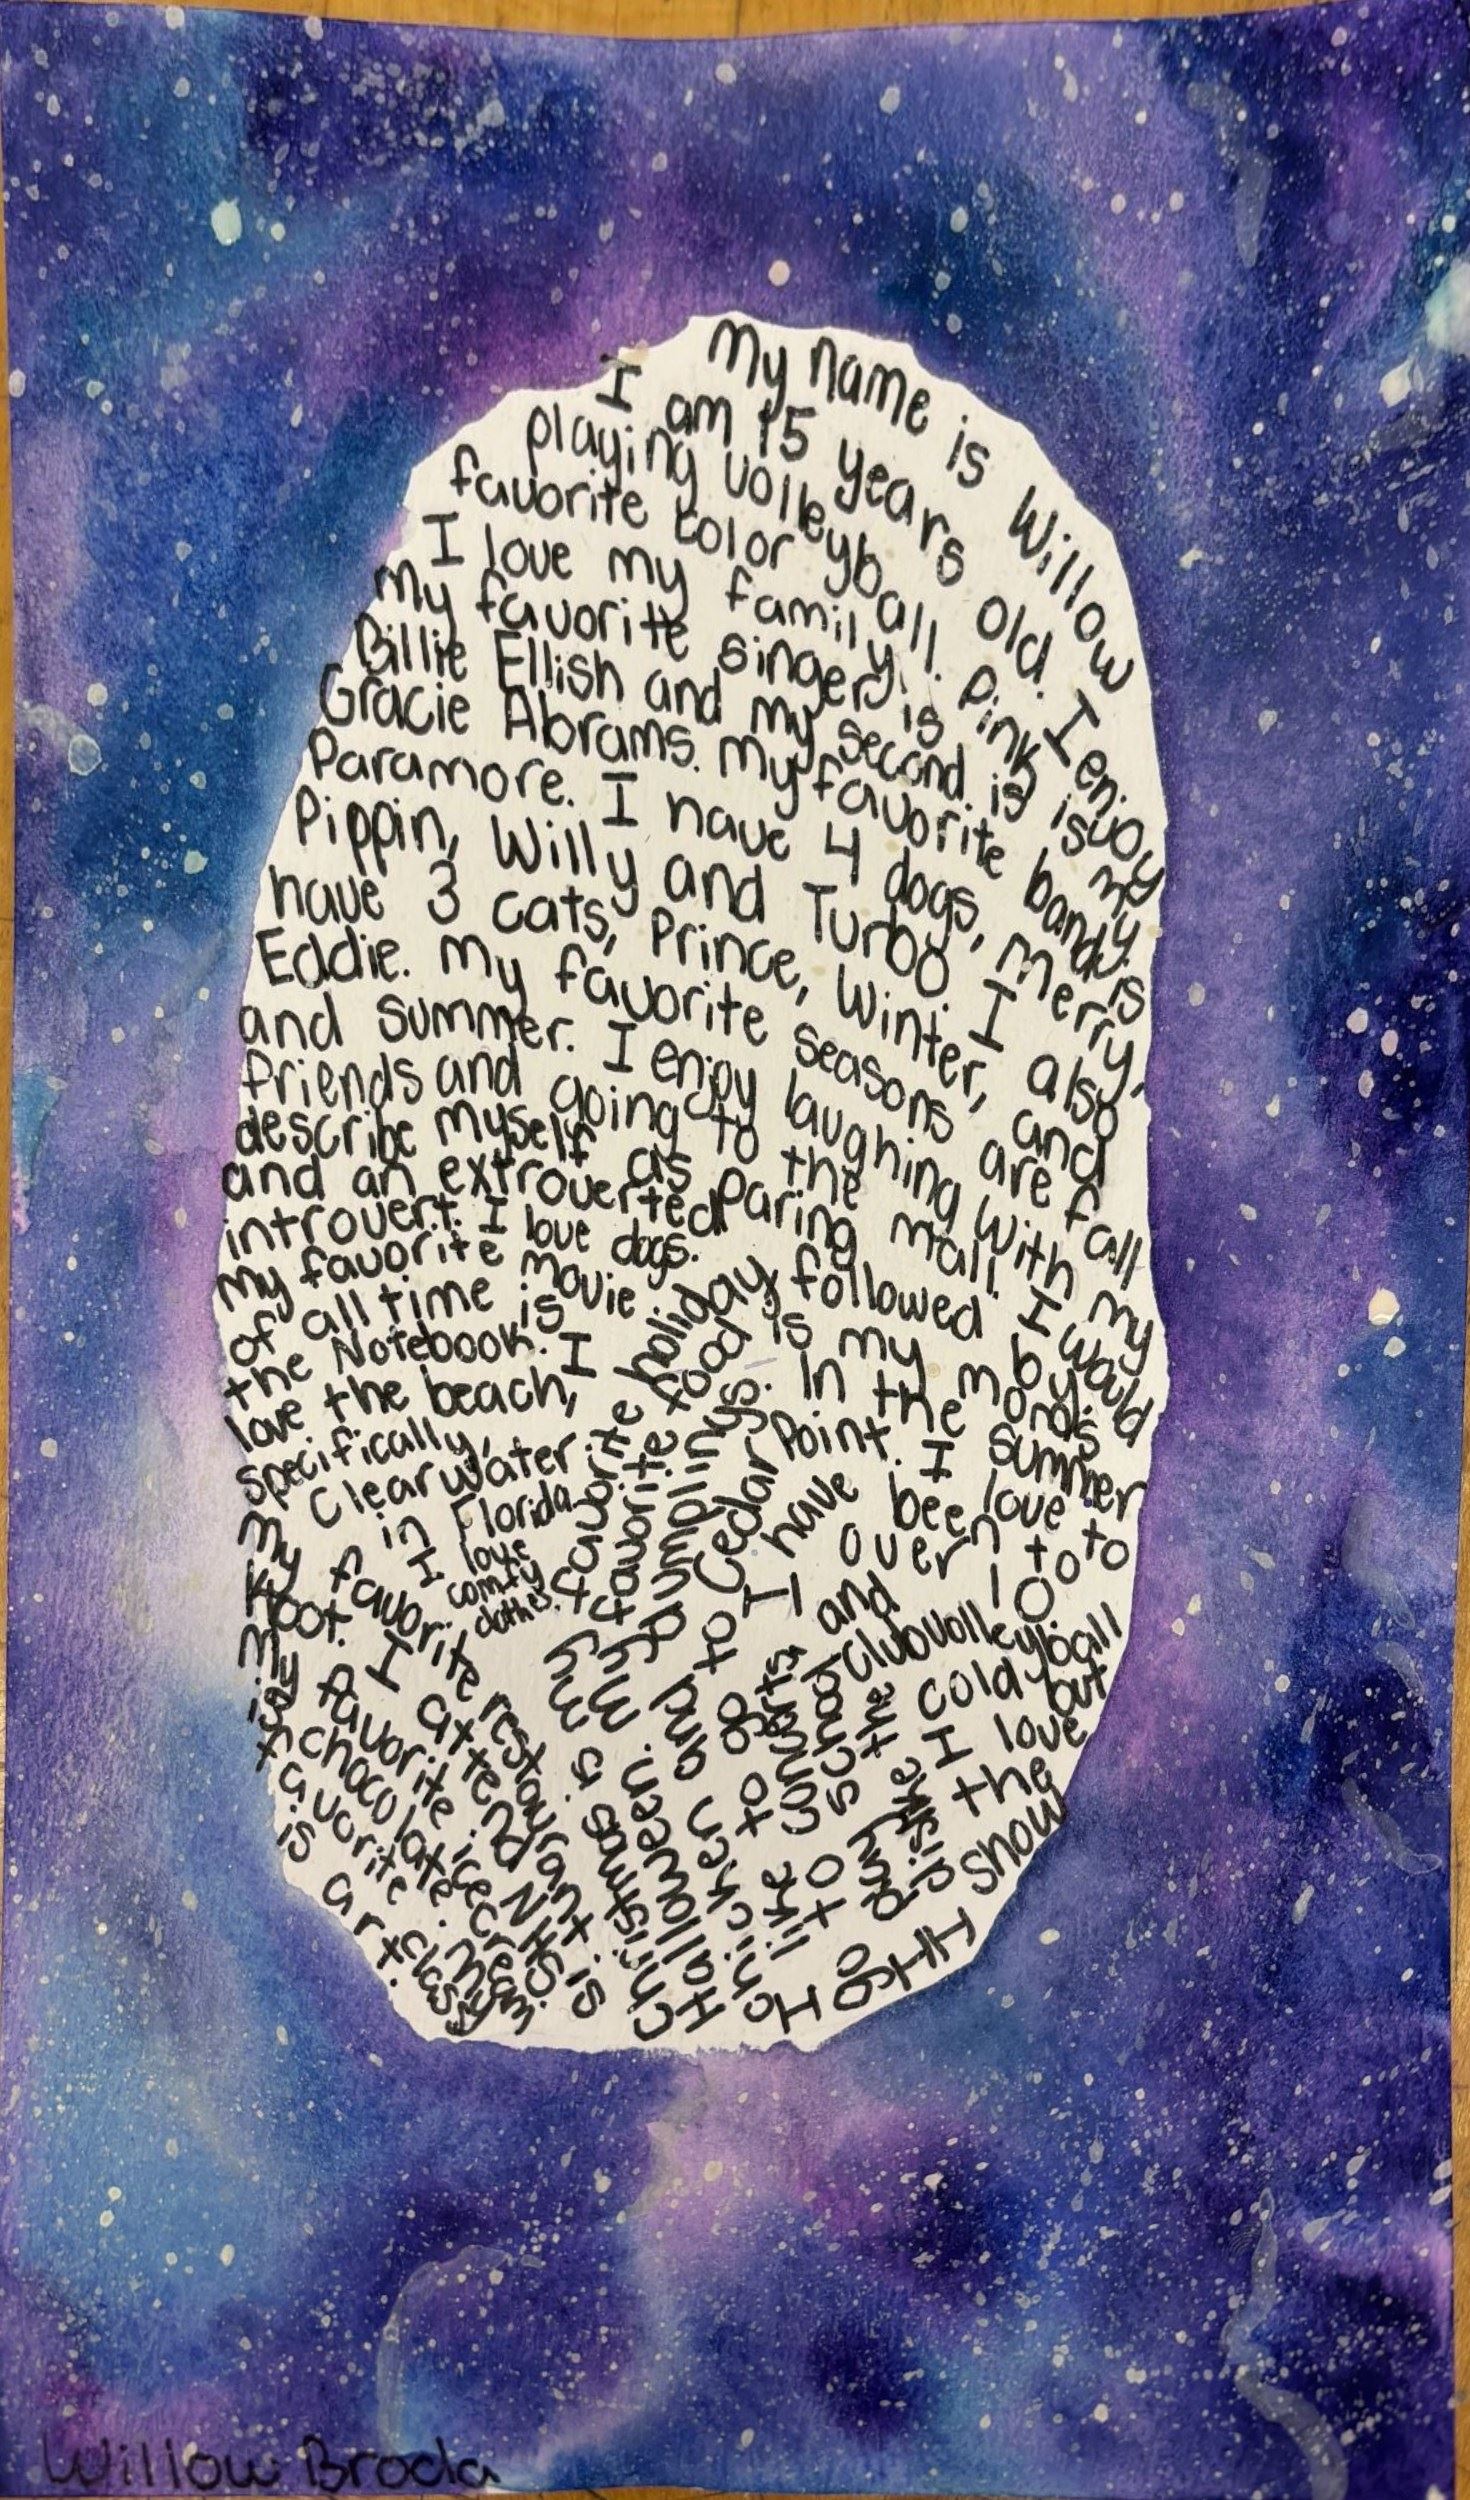 My name is Willow
I am 15 years old. I enjoy
playing volleyball. Pink is my
favorite color
I love my family.
My favorite singer is
Billie Ellish and my second is
Gracie Abrams. My favorite band is
Paramore. I have 4 dogs, Merry,
Pippin, Willy and Turbo. I also
have 3 cats, Prince, Winter, and
Eddie. My favorite seasons are fall
and summer. I enjoy laughing with my
friends and going to the mall. I would
describe myself as
and an extroverted
introvert. I love dogs.
My favorite movie
of all time is
the Notebook. I
love the beach,
specifically,
Clearwater
in Florida
I love
comfy
clothes.
My favorite restaurant is
Koot. I attend NHS.
My favorite icecream
is chocolate. My
favorite class
is art.
My favorite holiday
is Christmas, followed by
Halloween. My favorite food is my moms
chicken and dumplings. In the summer
I like to go to Cedar Point. I love to
go to concerts, I have been to
over 100
and
club volleyball
I love the cold but
dislike the
snow